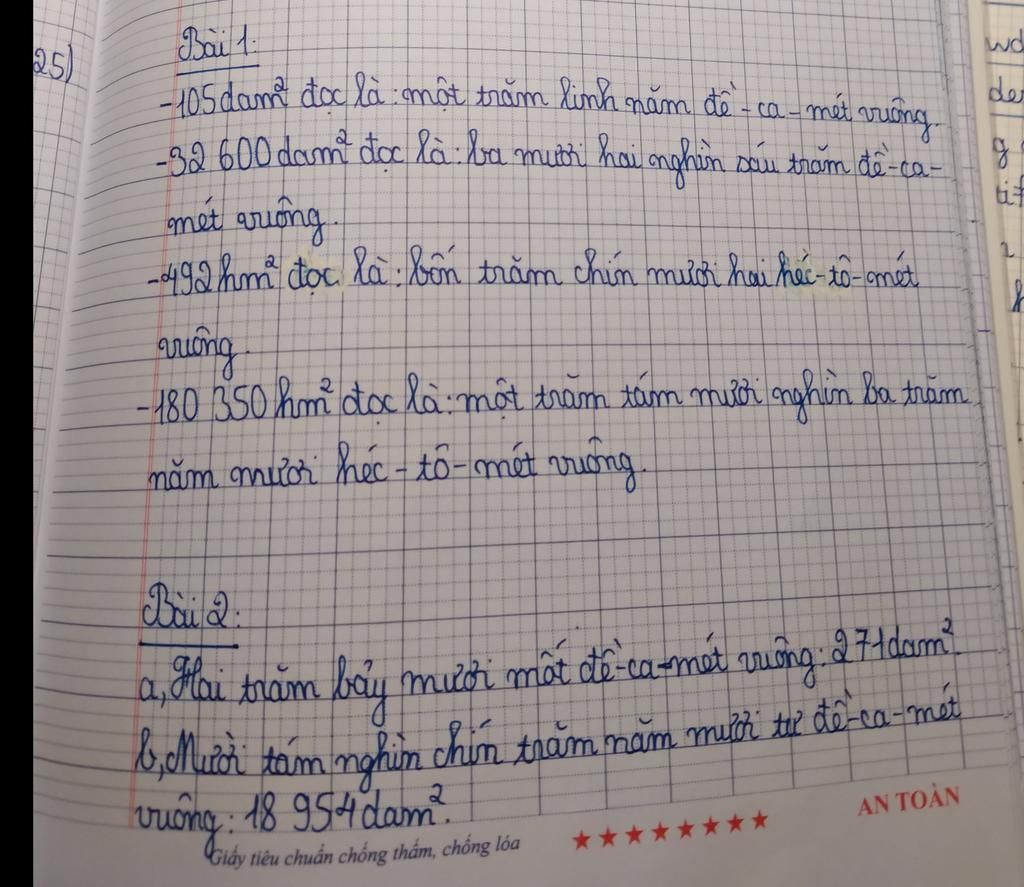 25)
Bài 1:
-105dam² đọc là: một trăm linh năm đề-ca-mét vuông.
-32 600dam² đọc là: ba mươi hai nghìn sáu trăm đề-ca-
mét vuông.
-492hm² đọc là: bốn trăm chín mươi hai héc-tô-mét
vuông.
-180 350hm² đọc là: một trăm tám mươi nghìn ba trăm
năm mươi héc-tô-mét vuông.
Bài 2:
a, Hai trăm bảy mươi mốt đề-ca-mét vuông: 271dam².
b, Mười tám nghìn chín trăm năm mươi tư đề-ca-mét
vuông: 18 954dam².
Giấy tiêu chuẩn chống thấm, chống lóa
AN TOÀN